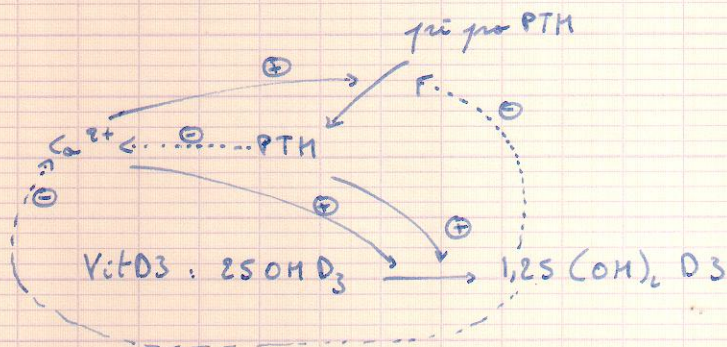 pré pro PTH
⊕
⊖
Ca²⁺ ⊖ PTH
⊖
⊕ ⊕
VitD3 : 25OHD₃ → 1,25(OH)₂ D3